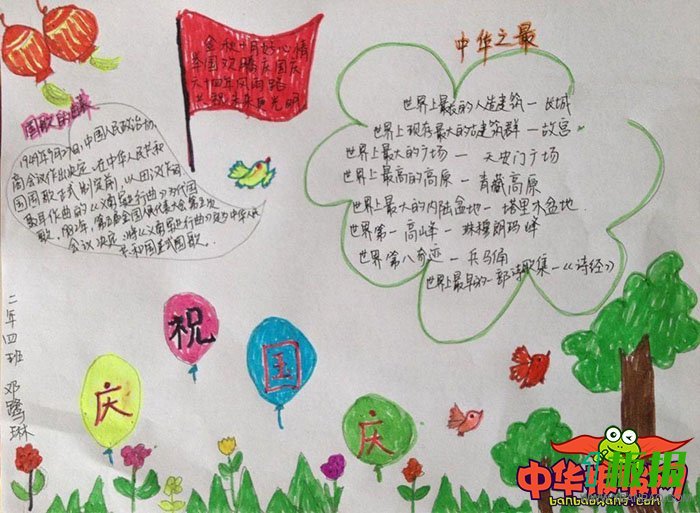 金秋十月好心情
举国欢腾庆国庆
六十四年风雨路
共祝未来更光明
中华之最
世界上最长的人造建筑—长城
世界上现存最大的古建筑群—故宫
世界上最大的广场—天安门广场
世界上最高的高原—青藏高原
世界上最大的内陆盆地—塔里木盆地
世界第一高峰—珠穆朗玛峰
世界第八奇迹—兵马俑
世界上最早的一部诗歌集—《诗经》
国歌的
1949年9月27日,中国人民政治协
商会议作出决定,在中华人民共和
国国歌正式制定前,以田汉作词
聂耳作曲的《义勇军进行曲》为代国
歌。1982年,第五届全国人民代表大会第五次
会议决定,将《义勇军进行曲》定为中华人民
共和国正式国歌。
二年四班 邓鹭琳
庆
祝
国
庆
中华
banbaowang.com